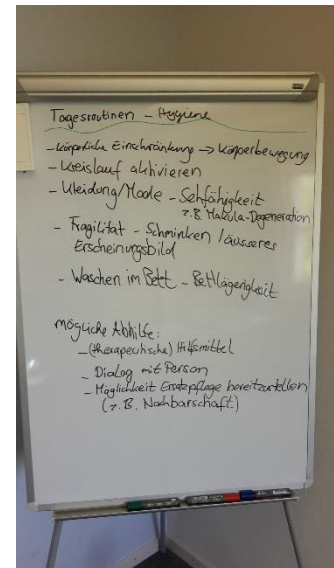 Tagesroutinen - Hygiene
- körperliche Einschränkung → Körperbewegung
- Kreislauf aktivieren
- Kleidung/Mode - Sehfähigkeit
z.B Makula-Degeneration
- Fragilität - Schminken / äusseres
Erscheinungsbild
- Waschen im Bett - Bettlägerigkeit
mögliche Abhilfe:
- (therapeutische) Hilfsmittel
- Dialog mit Person
- Möglichkeit Ersatzpflege bereitzustellen
(z.B. Nachbarschaft)